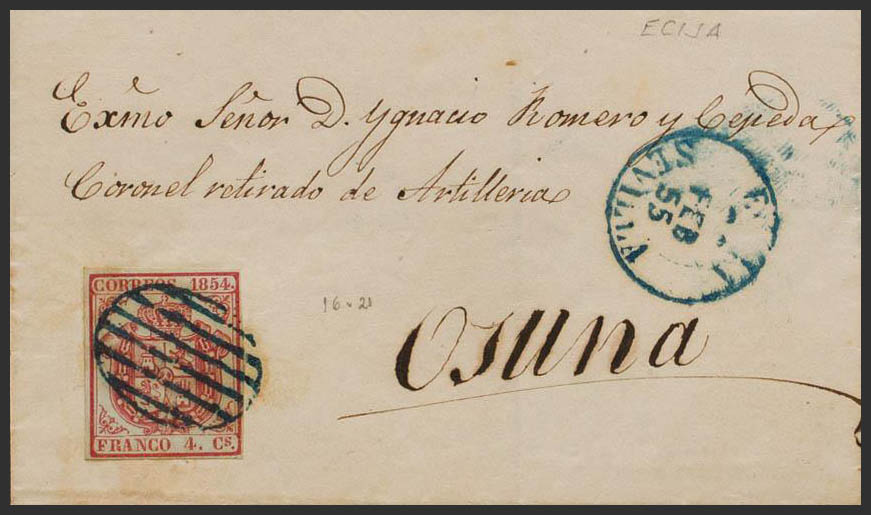 ECIJA
Exmo Señor D. Ygnacio Romero y Cepeda
Coronel retirado de Artilleria
SEVILLA
FEB
55
CORREOS 1854.
FRANCO 4. Cs.
16 v 21
Osuna